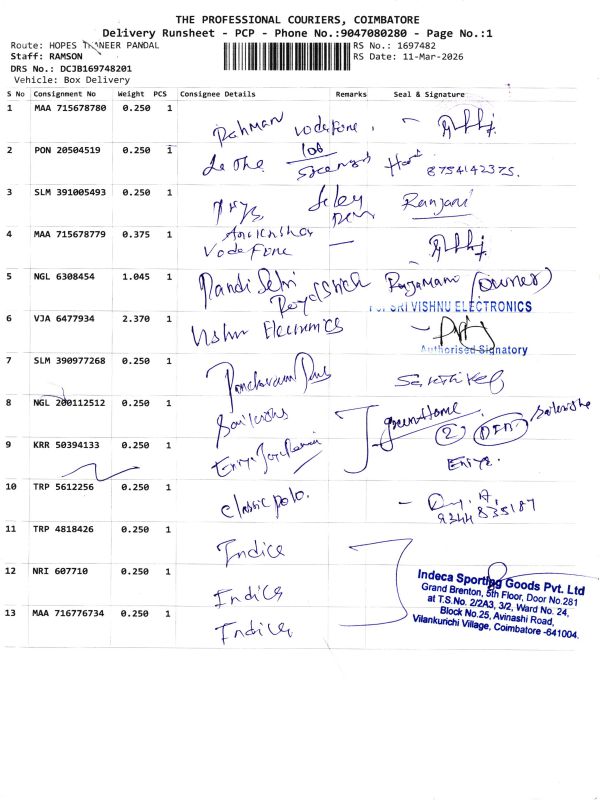 THE PROFESSIONAL COURIERS, COIMBATORE
Delivery Runsheet - PCP - Phone No.:9047080280 - Page No.:1
Route: HOPES PANEER PANDAL
RS No.: 1697482
Staff: RAMSON
RS Date: 11-Mar-2026
DRS No.: DCJB169748201
Vehicle: Box Delivery
S No Consignment No Weight PCS Consignee Details Remarks Seal & Signature
1 MAA 715678780 0.250 1 Rahman Vodafone
2 PON 20504519 0.250 1 108 8754142375.
3 SLM 391005493 0.250 1 Ranjani
4 MAA 715678779 0.375 1 Vodafone
5 NGL 6308454 1.045 1 Pandi Selvi Royal Stick Rajamano (owner)
SRI VISHNU ELECTRONICS
6 VJA 6477934 2.370 1 Vishnu Electronics
Authorised Signatory
7 SLM 390977268 0.250 1
8 NGL 200112512 0.250 1 Green Home Sailersha
9 KRR 50394133 0.250 1 2
10 TRP 5612256 0.250 1 Classic polo. 9344835187
11 TRP 4818426 0.250 1 Indica
12 NRI 607710 0.250 1 Indica
13 MAA 716776734 0.250 1 Indica
Indeca Sporting Goods Pvt. Ltd
Grand Brenton, 5th Floor, Door No.281
at T.S.No. 2/2A3, 3/2, Ward No. 24,
Block No.25, Avinashi Road,
Vilankurichi Village, Coimbatore -641004.